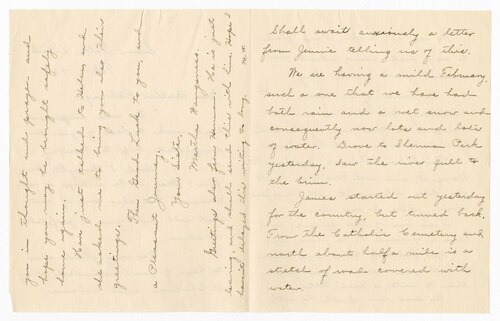 Shall await anxiously a letter
from Jennie telling us of this.
We are having a mild February,
such a one that we have had
both rain and a wet snow and
consequently now lots and lots
of water. Drove to Sherman Park
yesterday. Saw the river full to
the brim.
James started out yesterday
for the country, but turned back.
From the Catholic Cemetery and
north about half a mile is a
stretch of road covered with
water.
you in thought and prayer and
hope you may be brought safely
home again.
Have just talked to Helen and
she asked me to bring you also their
greetings.
Then Good Luck to you, and
a Pleasant Journey.
Your Sister,
Martha
Greetings also from He is just
leaving, and shall send this with him. Hope I
haven't delayed this writing too long.
M.H.